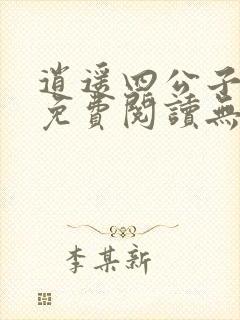 逍遥四公子
免費閱讀無
李某新